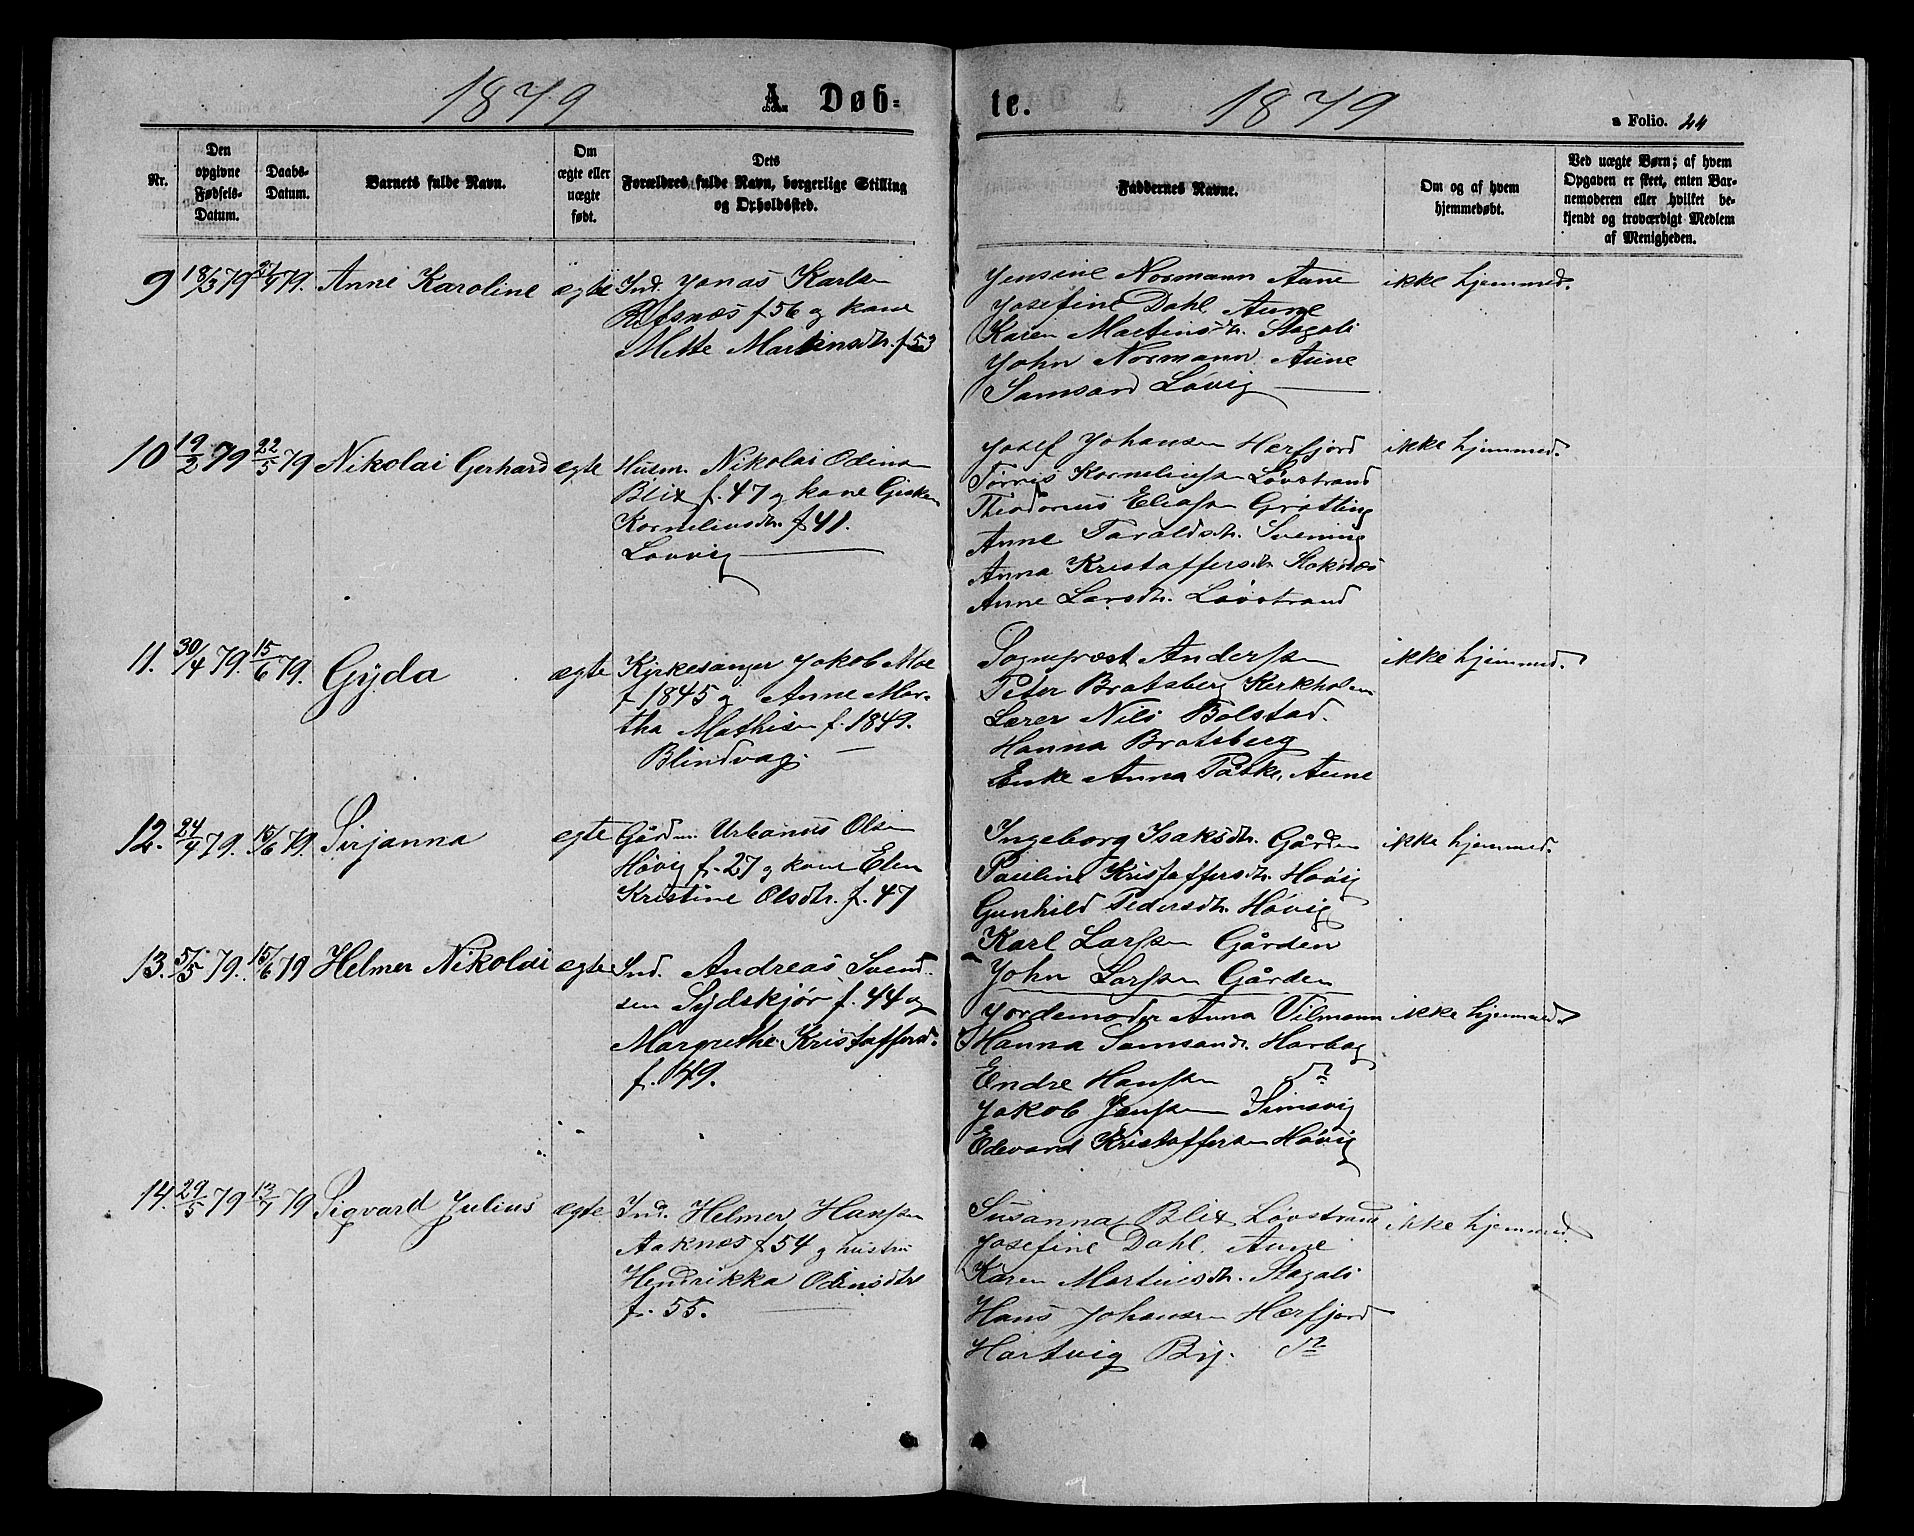 1879 A. Døb=
te. 1879
a Folio. 24
Nr.
Den opgivne Fødsels-Datum.
Daabs-Datum.
Barnets fulde Navn.
Om ægte eller uægte født.
Dets Forældres fulde Navn, borgerlige Stilling og Opholdssted.
Faddernes Navne.
Om og af hvem hjemmedøbt.
Ved uægte Børn; af hvem Opgaven er skeet, enten Barnemoderen eller hvilket bekjendt og troværdigt Medlem af Menigheden.
9 18/3 79 79. Anne Karoline ægte Ind. Jonas Karlsen
Refsnæs f 56 og kone
Mette Martinsdtr. f 53
Jensine Normann Aune ikke hjemmed.
Josefine Dahl Aune
Karen Martinsdtr. Stagali
John Normann Aune
Samsand Løvig
10 19/2 79 22/5 79 Nikolai Gerhard ægte Husm. Nikolai Odins
Blix f. 47 og kone Gjesken
Korneliusdtr. f 41.
Løvvig
Josef Johansen Hærfjord ikke hjemmed.
Tørris Korneliussen Løvstrand
Theodorius Eliassen Grøtting
Anne Taraldsdtr. Svening
Anna Kristaffersdtr Stoknæs
Anne Larsdtr. Løvstrand
11. 30/4 79. 15/6 79. Gyda ægte Kirkesanger Jakob Moe
f 1845 og Anne Mar-
tha Mathisen f. 1849.
Blindvag.
Sogneprest Anderssen ikke hjemmed.
Peter Bratsberg Kerkholmen
Lærer Nils Bolstad.
Hanna Bratsberg
Enke Anna Påske, Aune
12. 24/4 79. 15/6 79. Sirjanna egte Gårdm. Urbanus Olsen
Høvig f. 27 og kone Elen
Kristine Olsdtr. f. 47
Ingeborg Isaksdtr. Gården ikke hjemmed.
Pauline Kristaffersdtr. Høvig
Gunhild Pedersdtr. Høvig
Karl Larssen Gården
John Larssen Gården
13. 5/5 79. 15/6 79 Helmer Nikolai ægte Ind. Andreas Svend-
sen Sydskjør f. 44 og
Margrethe Kristaffersd.
f. 49.
Jordemoder Anna Vilmann ikke hjemmed.
Hanna Samsandr. Harbag
Endre Hanssen do
Jakob Jenssen Simsvig
Edevard Kristaffersen Høvig
14. 29/5 79 13/7 79 Sigvard Julius ægte Ind. Helmer Hanssen
Aaknes f 54 og hustru
Hendrikka Odinsdtr
f. 55.
Susanna Blix Løvstrand ikke hjemmed.
Josefine Dahl. Aune
Karen Martinsdtr. Stagali
Hans Johansen Hærfjord
Hartvig By. do